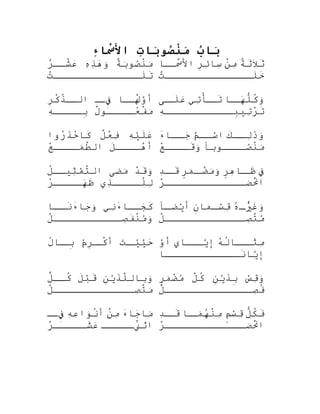 بَابُ مَنْصُوبَاتِ الأَسْمَاءِ
ثَلَاثَةٌ مِنْ سَائِرِ الأَسْمَا مَنْصُوبَةً وَهَذِهِ عَشْرٌ
خَلَتْ تَلَتْ
وَكُلُّهَا تَأْتِي عَلَى أَوَّلُهَا فِي الذِّكْرِ
تَرْتِيبِهِ مَفْعُولٌ بِهِ
وَذَلِكَ اسْمٌ جَاءَ عَلَيْهِ فِعْلٌ كَاحْذَرُوا
مَنْصُوباً وَقَعْ أَهْلَ الطَّمَعْ
فِي ظَاهِرٍ وَمُضْمَرٍ قَدِ وَقَدْ مَضَى التَّمْثِيلُ
انْحَصَرْ لِلَّذِي ظَهَرْ
وَغَيْرُهُ قِسْمَانِ أَيْضاً كَجَاءَنِي وَجَاءَنَا
مُتَّصِلْ وَمُنْفَصِلْ
مِثَالُهُ إِيَّايَ أَوْ حَيَّيْتَ أَكْرِمْ بِالْ
إِيَّانَا
وَقِسْ بِذَيْنِ كُلَّ مُضْمَرٍ وَبِاللَّذَيْنِ قَبْلَ كُلَّ
فُصِلْ مُتَّصِلْ
فَكُلُّ قِسْمٍ مِنْهُمَا قَدِ مَاجَاءَ مِنْ أَنْوَاعِهِ فِي
انْحَصَرْ اثْنَيْ عَشَرْ